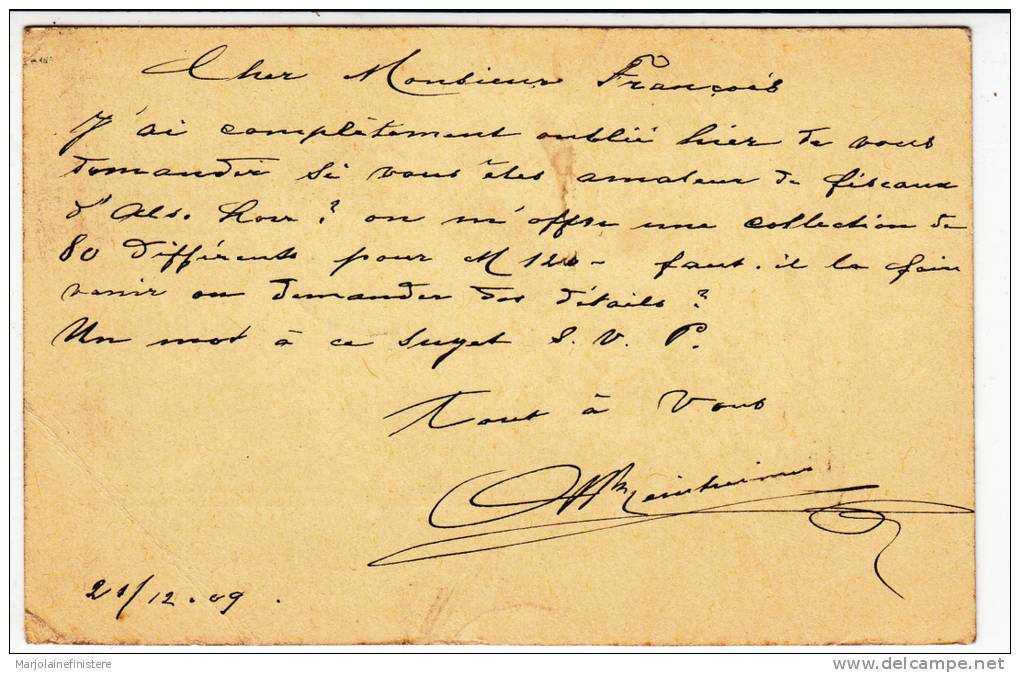 Cher Monsieur François
J'ai complètement oublié hier de vous
demander si vous êtes amateur de fiscaux
d'Als. Lorr? on m'offre une collection de
80 différents pour M 120- faut-il la faire
venir ou demander des détails?
Un mot à ce sujet S. V. P.
Tout à Vous
21/12.09.
Marjolainefinistere
delcampe.net